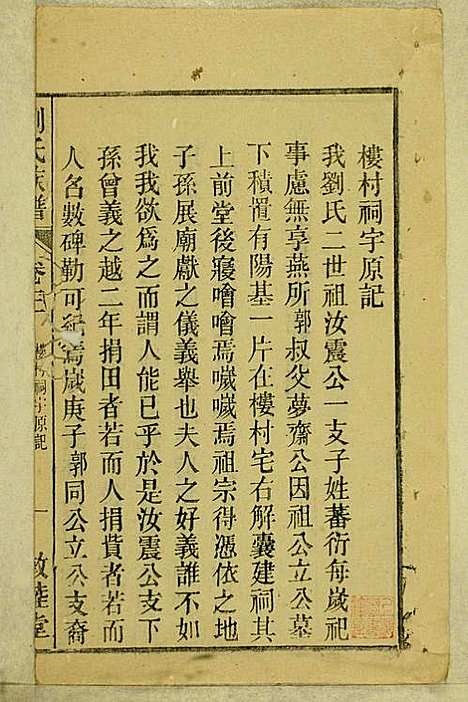 樓村祠宇原記
我劉氏二世祖汝震公一支子姓蕃衍每歲祀
事慮無享燕所郭叔父夢齋公因祖公立公墓
下積置有陽基一片在樓村宅右解囊建祠其
上前堂後寢噲噲焉噦噦焉祖宗得憑依之地
子孫展廟獻之儀義舉也夫人之好義誰不如
我我欲爲之而謂人能已乎於是汝震公支下
孫曾義之越二年捐田者若而人捐貲者若而
人名數碑勒可紀焉歲庚子郭同公立公支裔
劉氏族譜 卷 樓村祠宇原記 一 敦睦堂